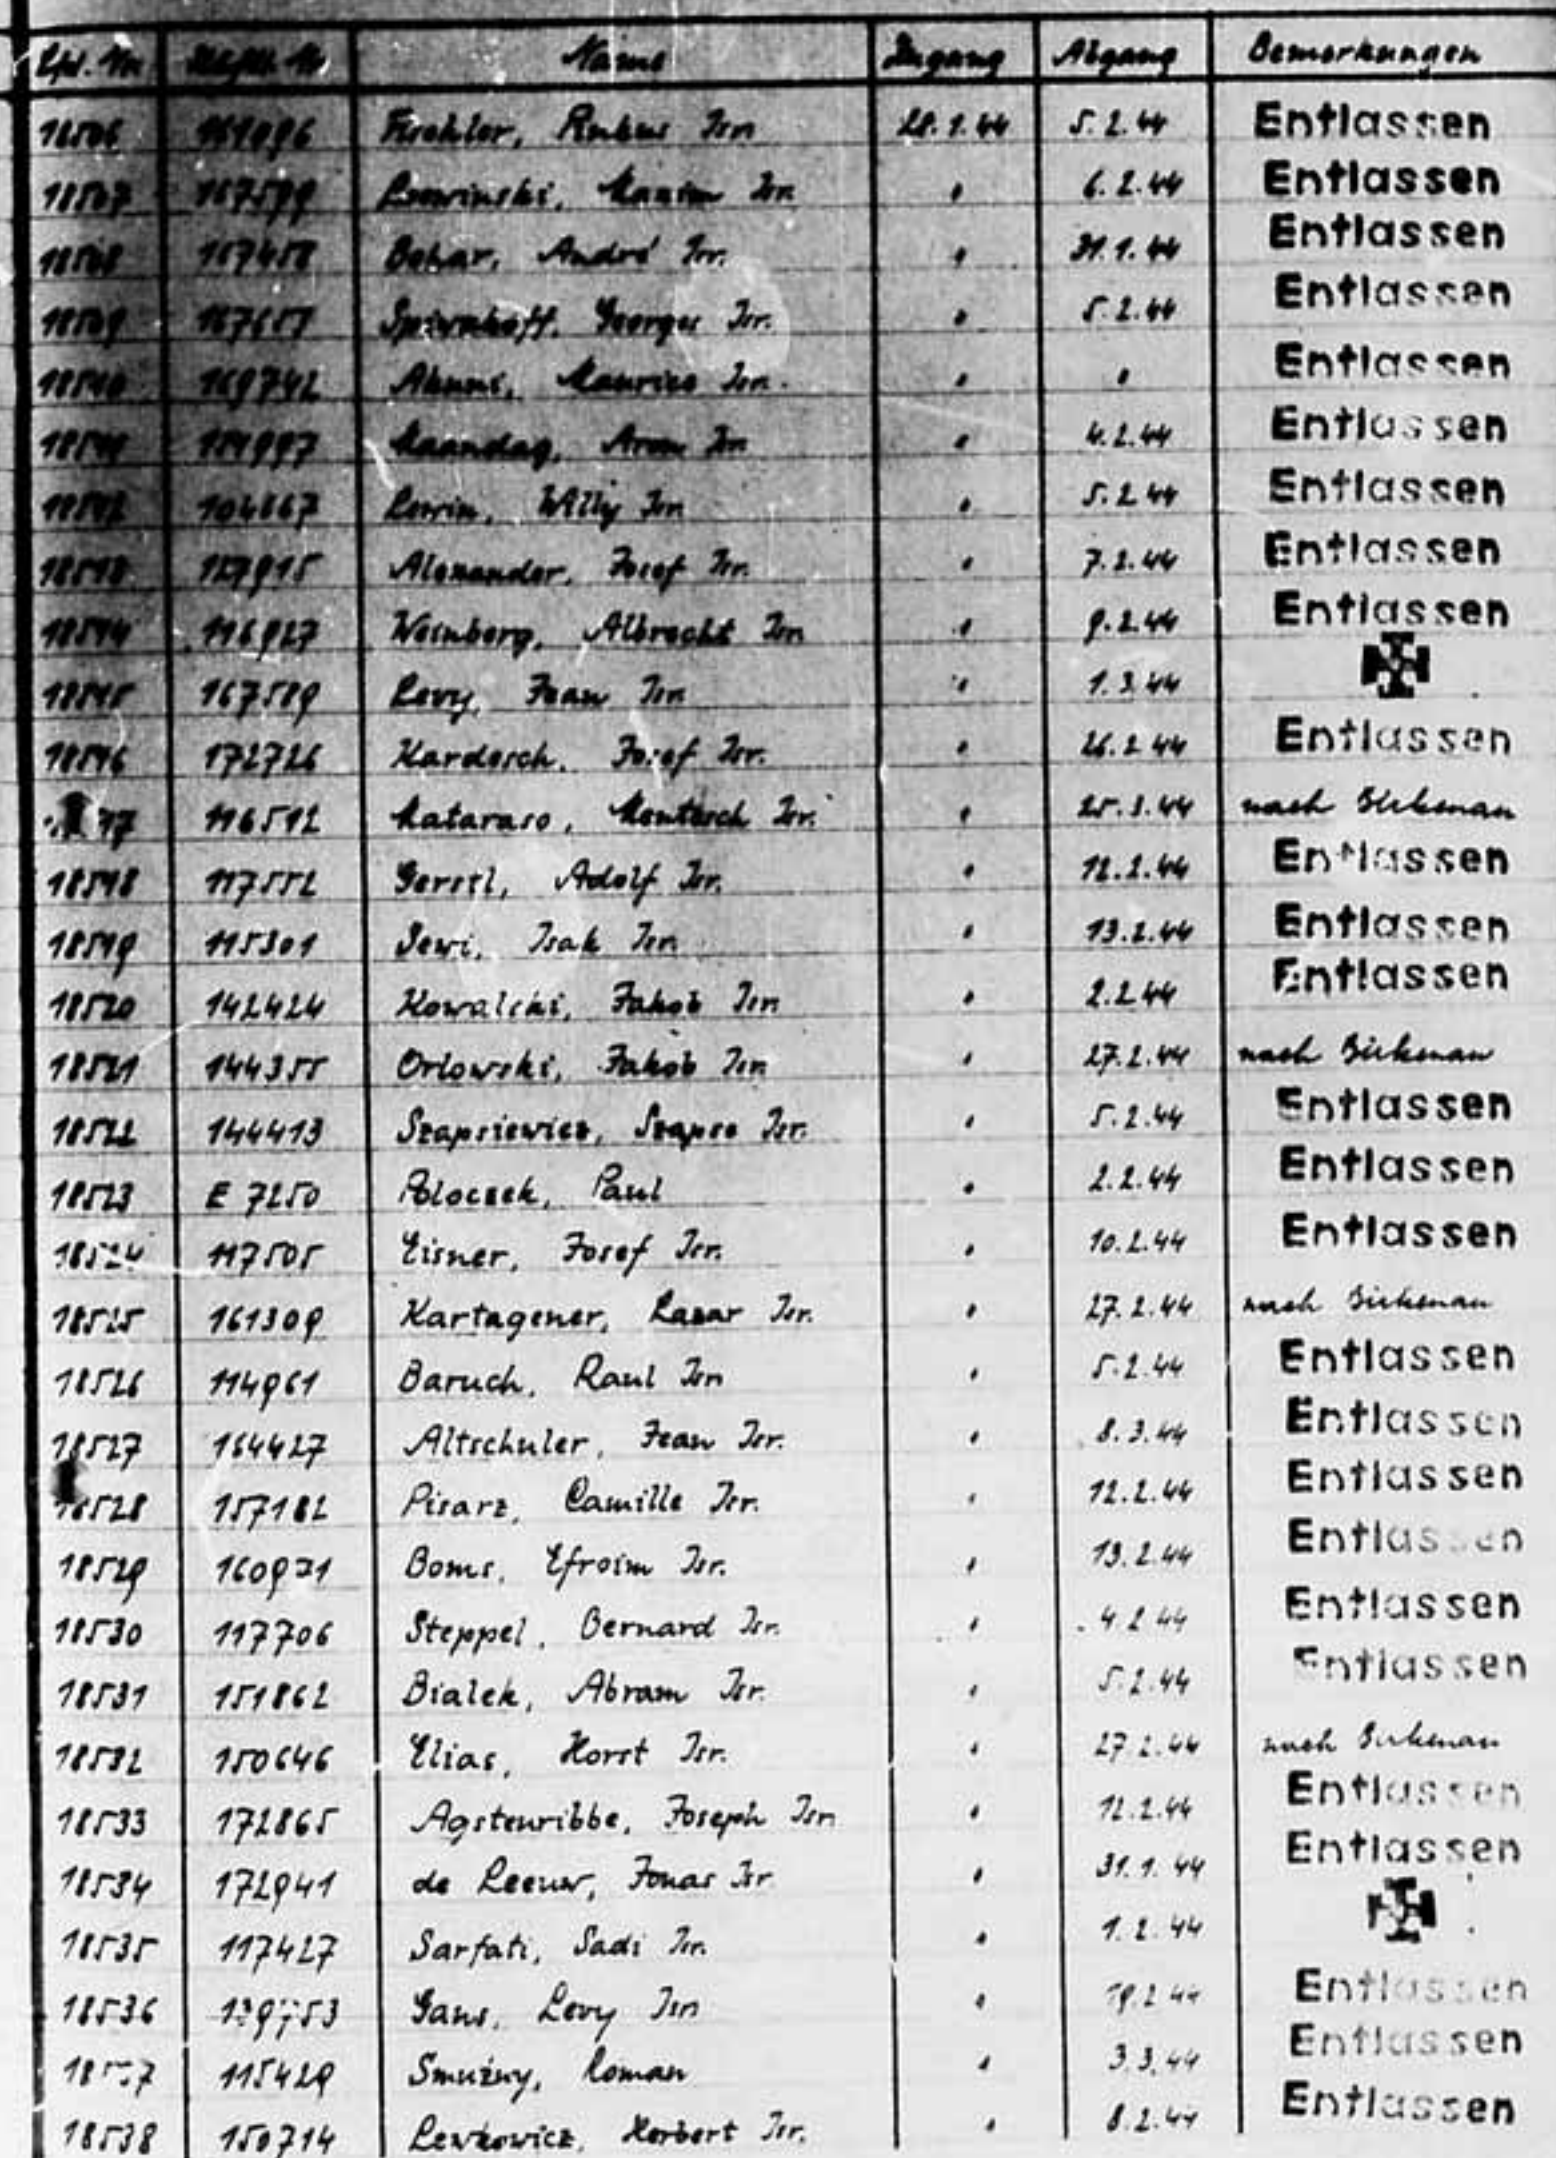 Lfd. Nr. Name Zugang Abgang Bemerkungen
161096 Isr. 28.1.44 5.2.44 Entlassen
18507 167599 Isr. " 6.2.44 Entlassen
18508 167458 Behar, André Isr. " 31.1.44 Entlassen
18509 167657 Georges Isr. " 5.2.44 Entlassen
18510 169742 Maurice Isr. " " Entlassen
18511 Maandag, Aron Isr. " 4.2.44 Entlassen
18512 104667 Lewin, Willy Isr. " 5.2.44 Entlassen
18513 127915 Alexander, Josef Isr. " 7.2.44 Entlassen
18514 116927 Weinberg, Albrecht Isr. " 9.2.44 Entlassen
18515 167589 Levy, Jean Isr. " 1.3.44
18516 172726 Kardosch, Josef Isr. " 26.2.44 Entlassen
17 116512 Mataraso, Isr. " 25.3.44 nach Birkenau
18518 117552 Gerstl, Adolf Isr. " 12.2.44 Entlassen
18519 115301 Isak Isr. " 13.2.44 Entlassen
18520 142424 Kowalski, Jakob Isr. " 2.2.44 Entlassen
18521 144355 Orlowski, Jakob Isr. " 27.2.44 nach Birkenau
18522 144413 Szapsiewicz, Szapse Isr. " 5.2.44 Entlassen
18523 E 7250 Poloczek, Paul " 2.2.44 Entlassen
18524 117505 Eisner, Josef Isr. " 10.2.44 Entlassen
18525 161309 Kartagener, Lazar Isr. " 27.2.44 nach Birkenau
18526 114961 Baruch, Raul Isr. " 5.2.44 Entlassen
18527 164427 Altschuler, Jean Isr. " 8.3.44 Entlassen
18528 157182 Pisarz, Camille Isr. " 12.2.44 Entlassen
18529 160971 Boms, Efroim Isr. " 13.2.44 Entlassen
18530 117706 Steppel, Bernard Isr. " 4.2.44 Entlassen
18531 151862 Bialek, Abram Isr. " 5.2.44 Entlassen
18532 150646 Elias, Horst Isr. " 27.2.44 nach Birkenau
18533 172865 Agstenribbe, Joseph Isr. " 12.2.44 Entlassen
18534 172941 de Leeuw, Jonas Isr. " 31.1.44 Entlassen
18535 117427 Sarfati, Sadi Isr. " 1.2.44
18536 139753 Gans, Levy Isr. " 19.2.44 Entlassen
115429 Smużny, Roman " 3.3.44 Entlassen
18538 150714 Lewkowicz, Herbert Isr. " 8.2.44 Entlassen